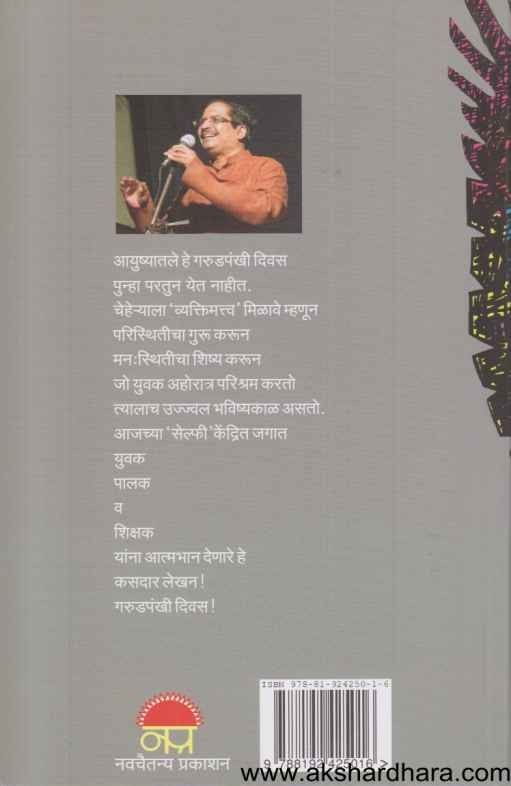 आयुष्यातले हे गरुडपंखी दिवस
पुन्हा परतुन येत नाहीत.
चेहेऱ्याला 'व्यक्तिमत्त्व' मिळावे म्हणून
परिस्थितीचा गुरू करून
मनःस्थितीचा शिष्य करून
जो युवक अहोरात्र परिश्रम करतो
त्यालाच उज्ज्वल भविष्यकाळ असतो.
आजच्या 'सेल्फी' केंद्रित जगात
युवक
पालक
व
शिक्षक
यांना आत्मभान देणारे हे
कसदार लेखन!
गरुडपंखी दिवस!
ISBN 978-81-924250-1-6
9 788192 425016 >
नवचैतन्य प्रकाशन
www.akshardhara.com